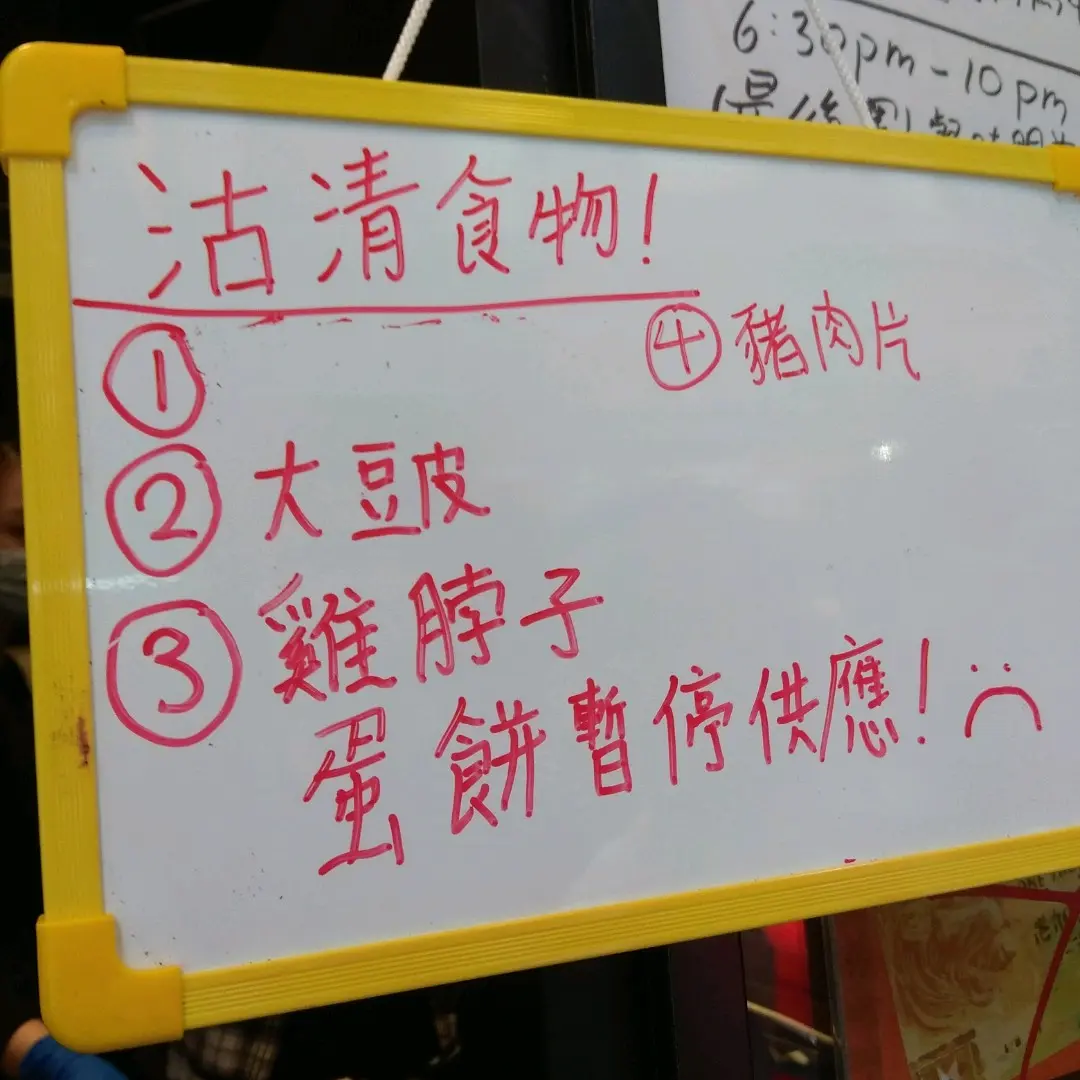 6:30pm-10pm
沽清食物!
①
② 大豆皮
③ 雞脖子
④ 豬肉片
蛋餅暫停供應!